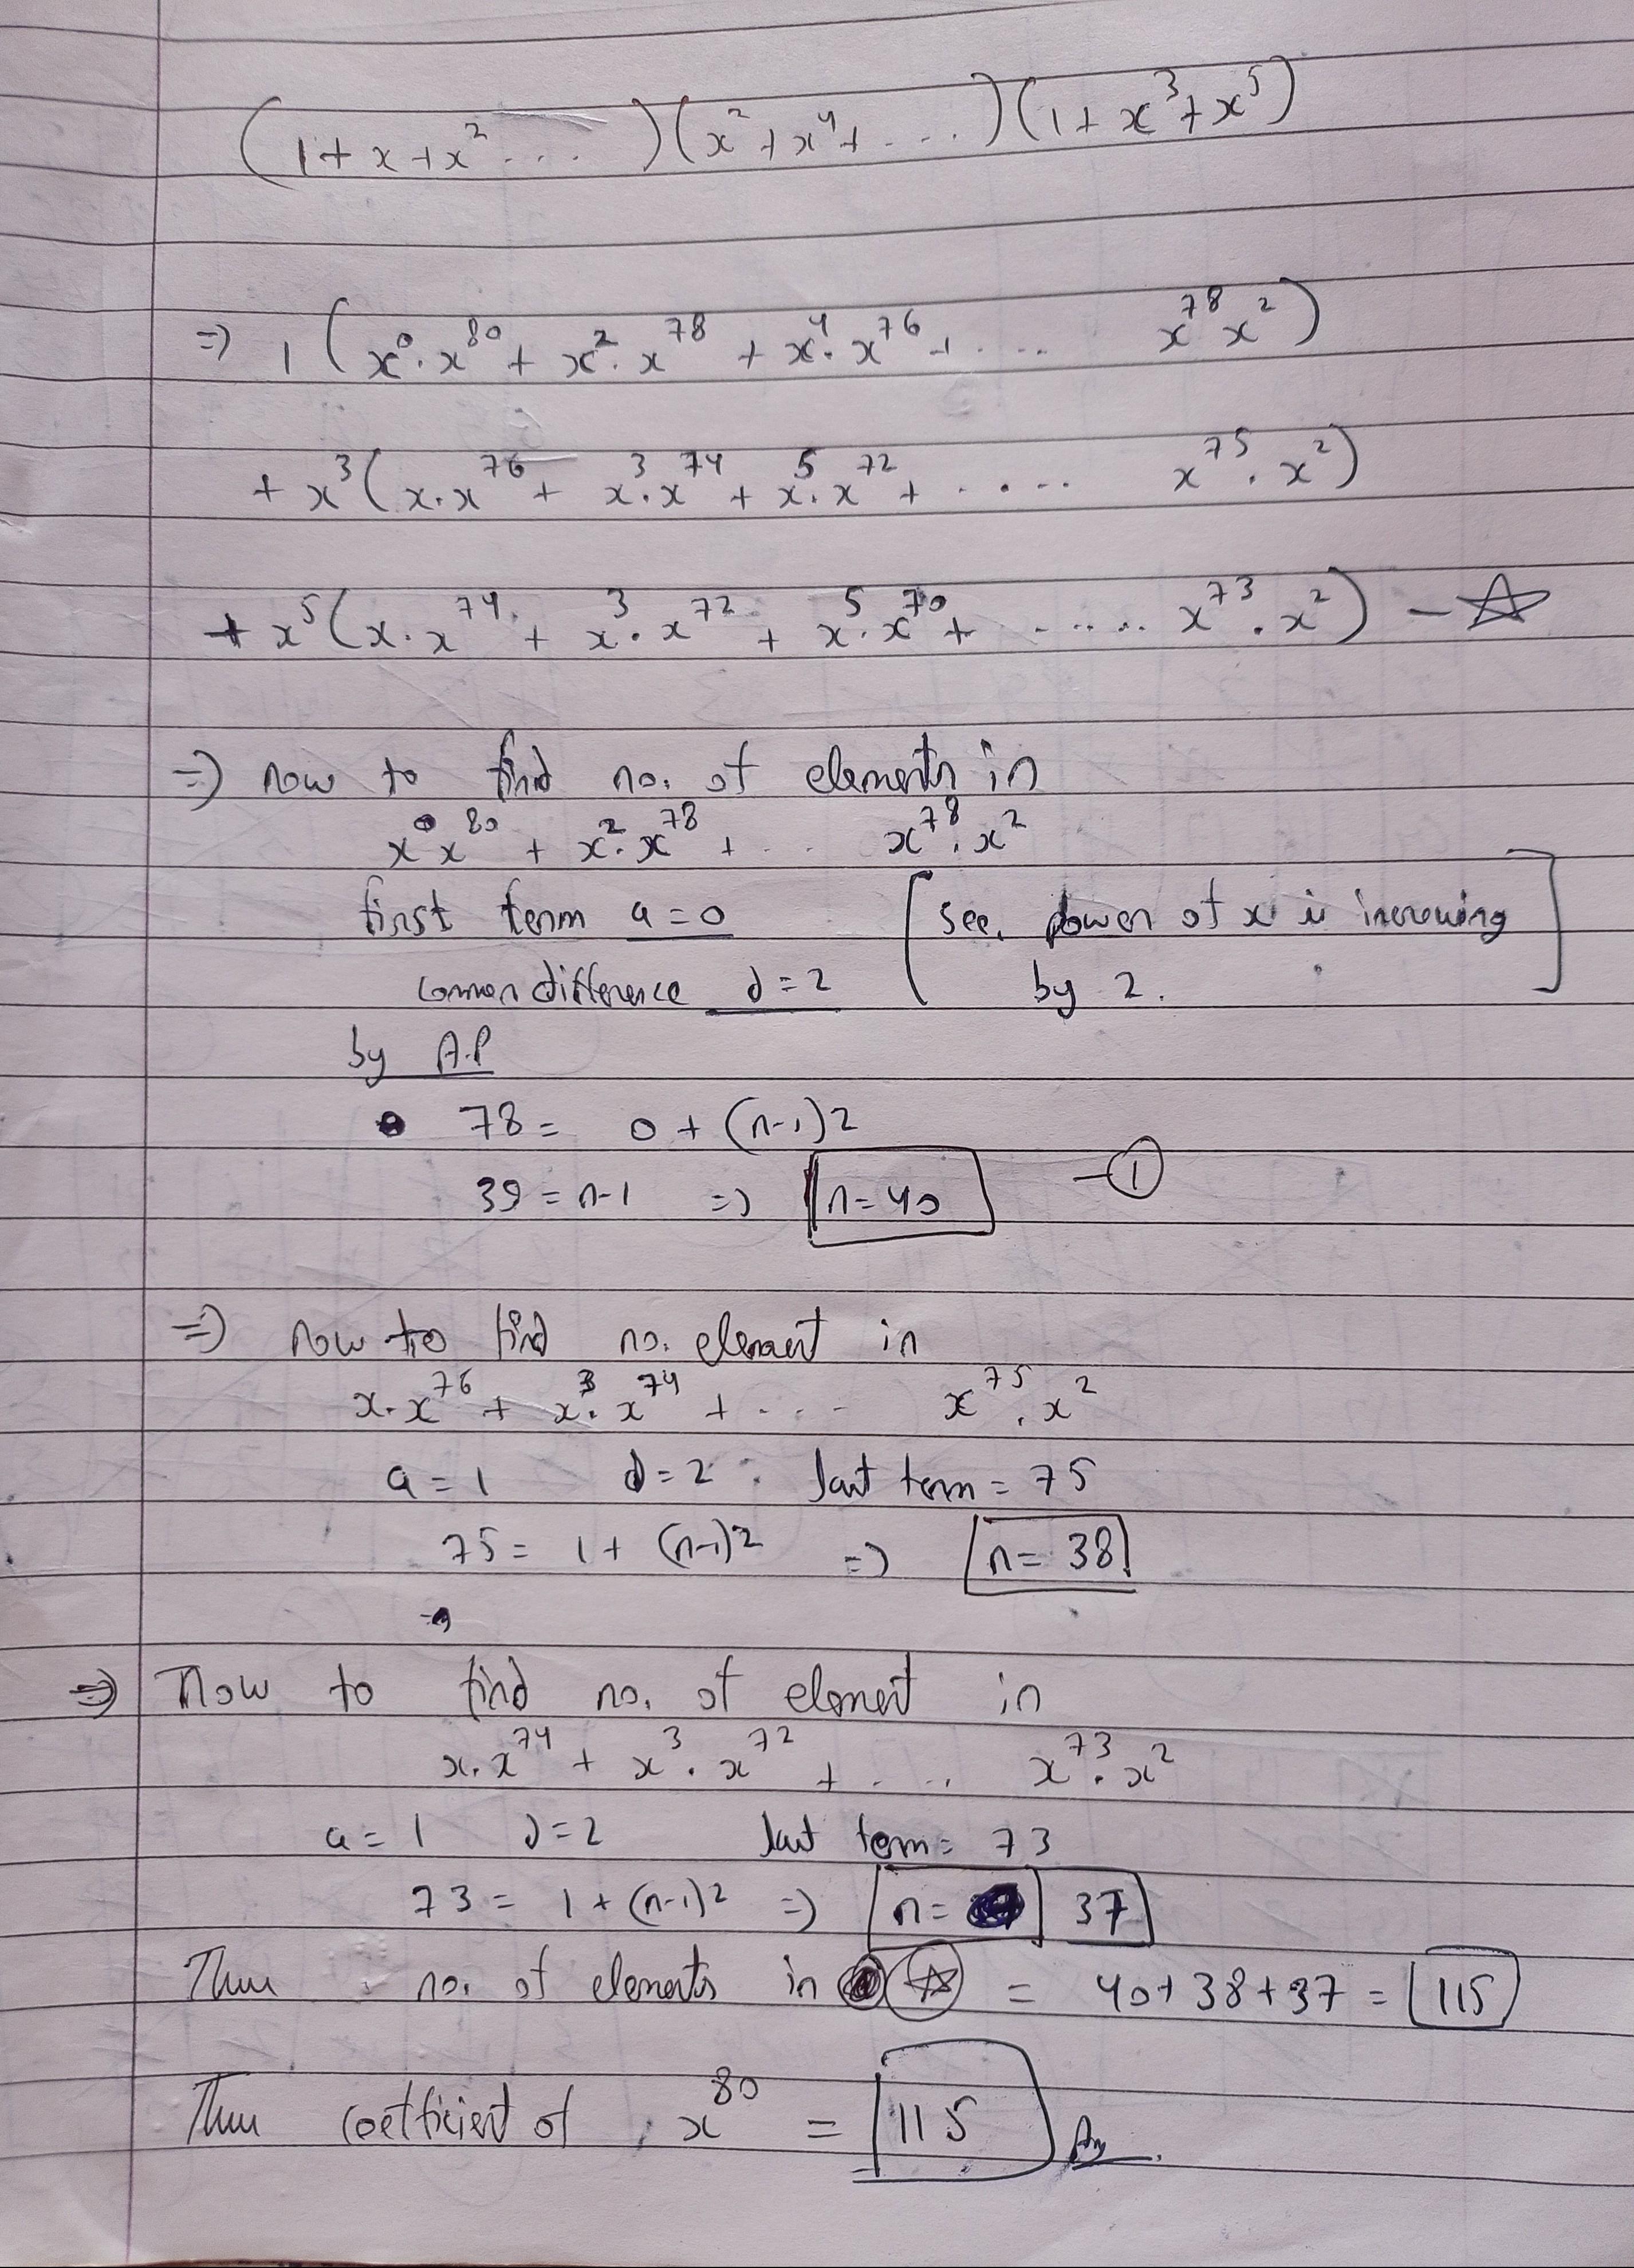 (1 + x + x² ....)(x² + x⁴ + ....)(1 + x³ + x⁵)
=) 1 (x⁰.x⁸⁰ + x².x⁷⁸ + x⁴.x⁷⁶ + .... x⁷⁸x²)
+ x³(x.x⁷⁶ + x³.x⁷⁴ + x⁵.x⁷² + ..... x⁷⁵.x²)
+ x⁵(x.x⁷⁴ + x³.x⁷² + x⁵.x⁷⁰ + ..... x⁷³.x²) – ☆
=) now to find no. of elements in
x⁰x⁸⁰ + x².x⁷⁸ + .. x⁷⁸.x²
first term a = 0 [see, power of x is increasing
common difference d = 2 by 2.]
by A.P
78 = 0 + (n-1)2
39 = n-1 =) n = 40 – ①
=) now to find no. element in
x.x⁷⁶ + x³.x⁷⁴ + .... x⁷⁵.x²
a = 1 d = 2 last term = 75
75 = 1 + (n-1)2 =) n = 38
=) Now to find no. of element in
x.x⁷⁴ + x³.x⁷² + .... x⁷³.x²
a = 1 d = 2 last term = 73
73 = 1 + (n-1)2 =) n = 37
Thus no. of elements in ☆ = 40 + 38 + 37 = 115
Thus coefficient of x⁸⁰ = 115 Ans.